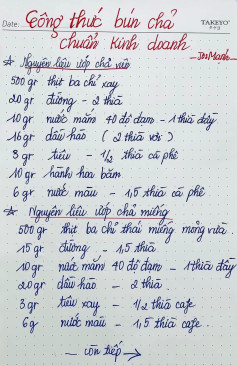 Date:
TAKEYO®
Công thức bún chả
chuẩn kinh doanh
☆ Nguyên liệu ướp chả viên
500 gr thịt ba chỉ xay
20 gr đường - 2 thìa
10 gr nước mắm 40 độ đạm - 1 thìa đầy
16 gr dầu hào ( 2 thìa vơi )
3 gr tiêu - 1/2 thìa cà phê
10 gr hành hoa băm
6 gr nước màu - 1,5 thìa cà phê
☆ Nguyên liệu ướp chả miếng
500 gr thịt ba chỉ thái miếng mỏng vừa.
15 gr đường - 1,5 thìa
10 gr nước mắm 40 độ đạm - 1 thìa đầy
20 gr dầu hào - 2 thìa.
3 gr tiêu xay - 1/2 thìa cafe
6 g nước màu - 1,5 thìa cafe.
- còn tiếp →